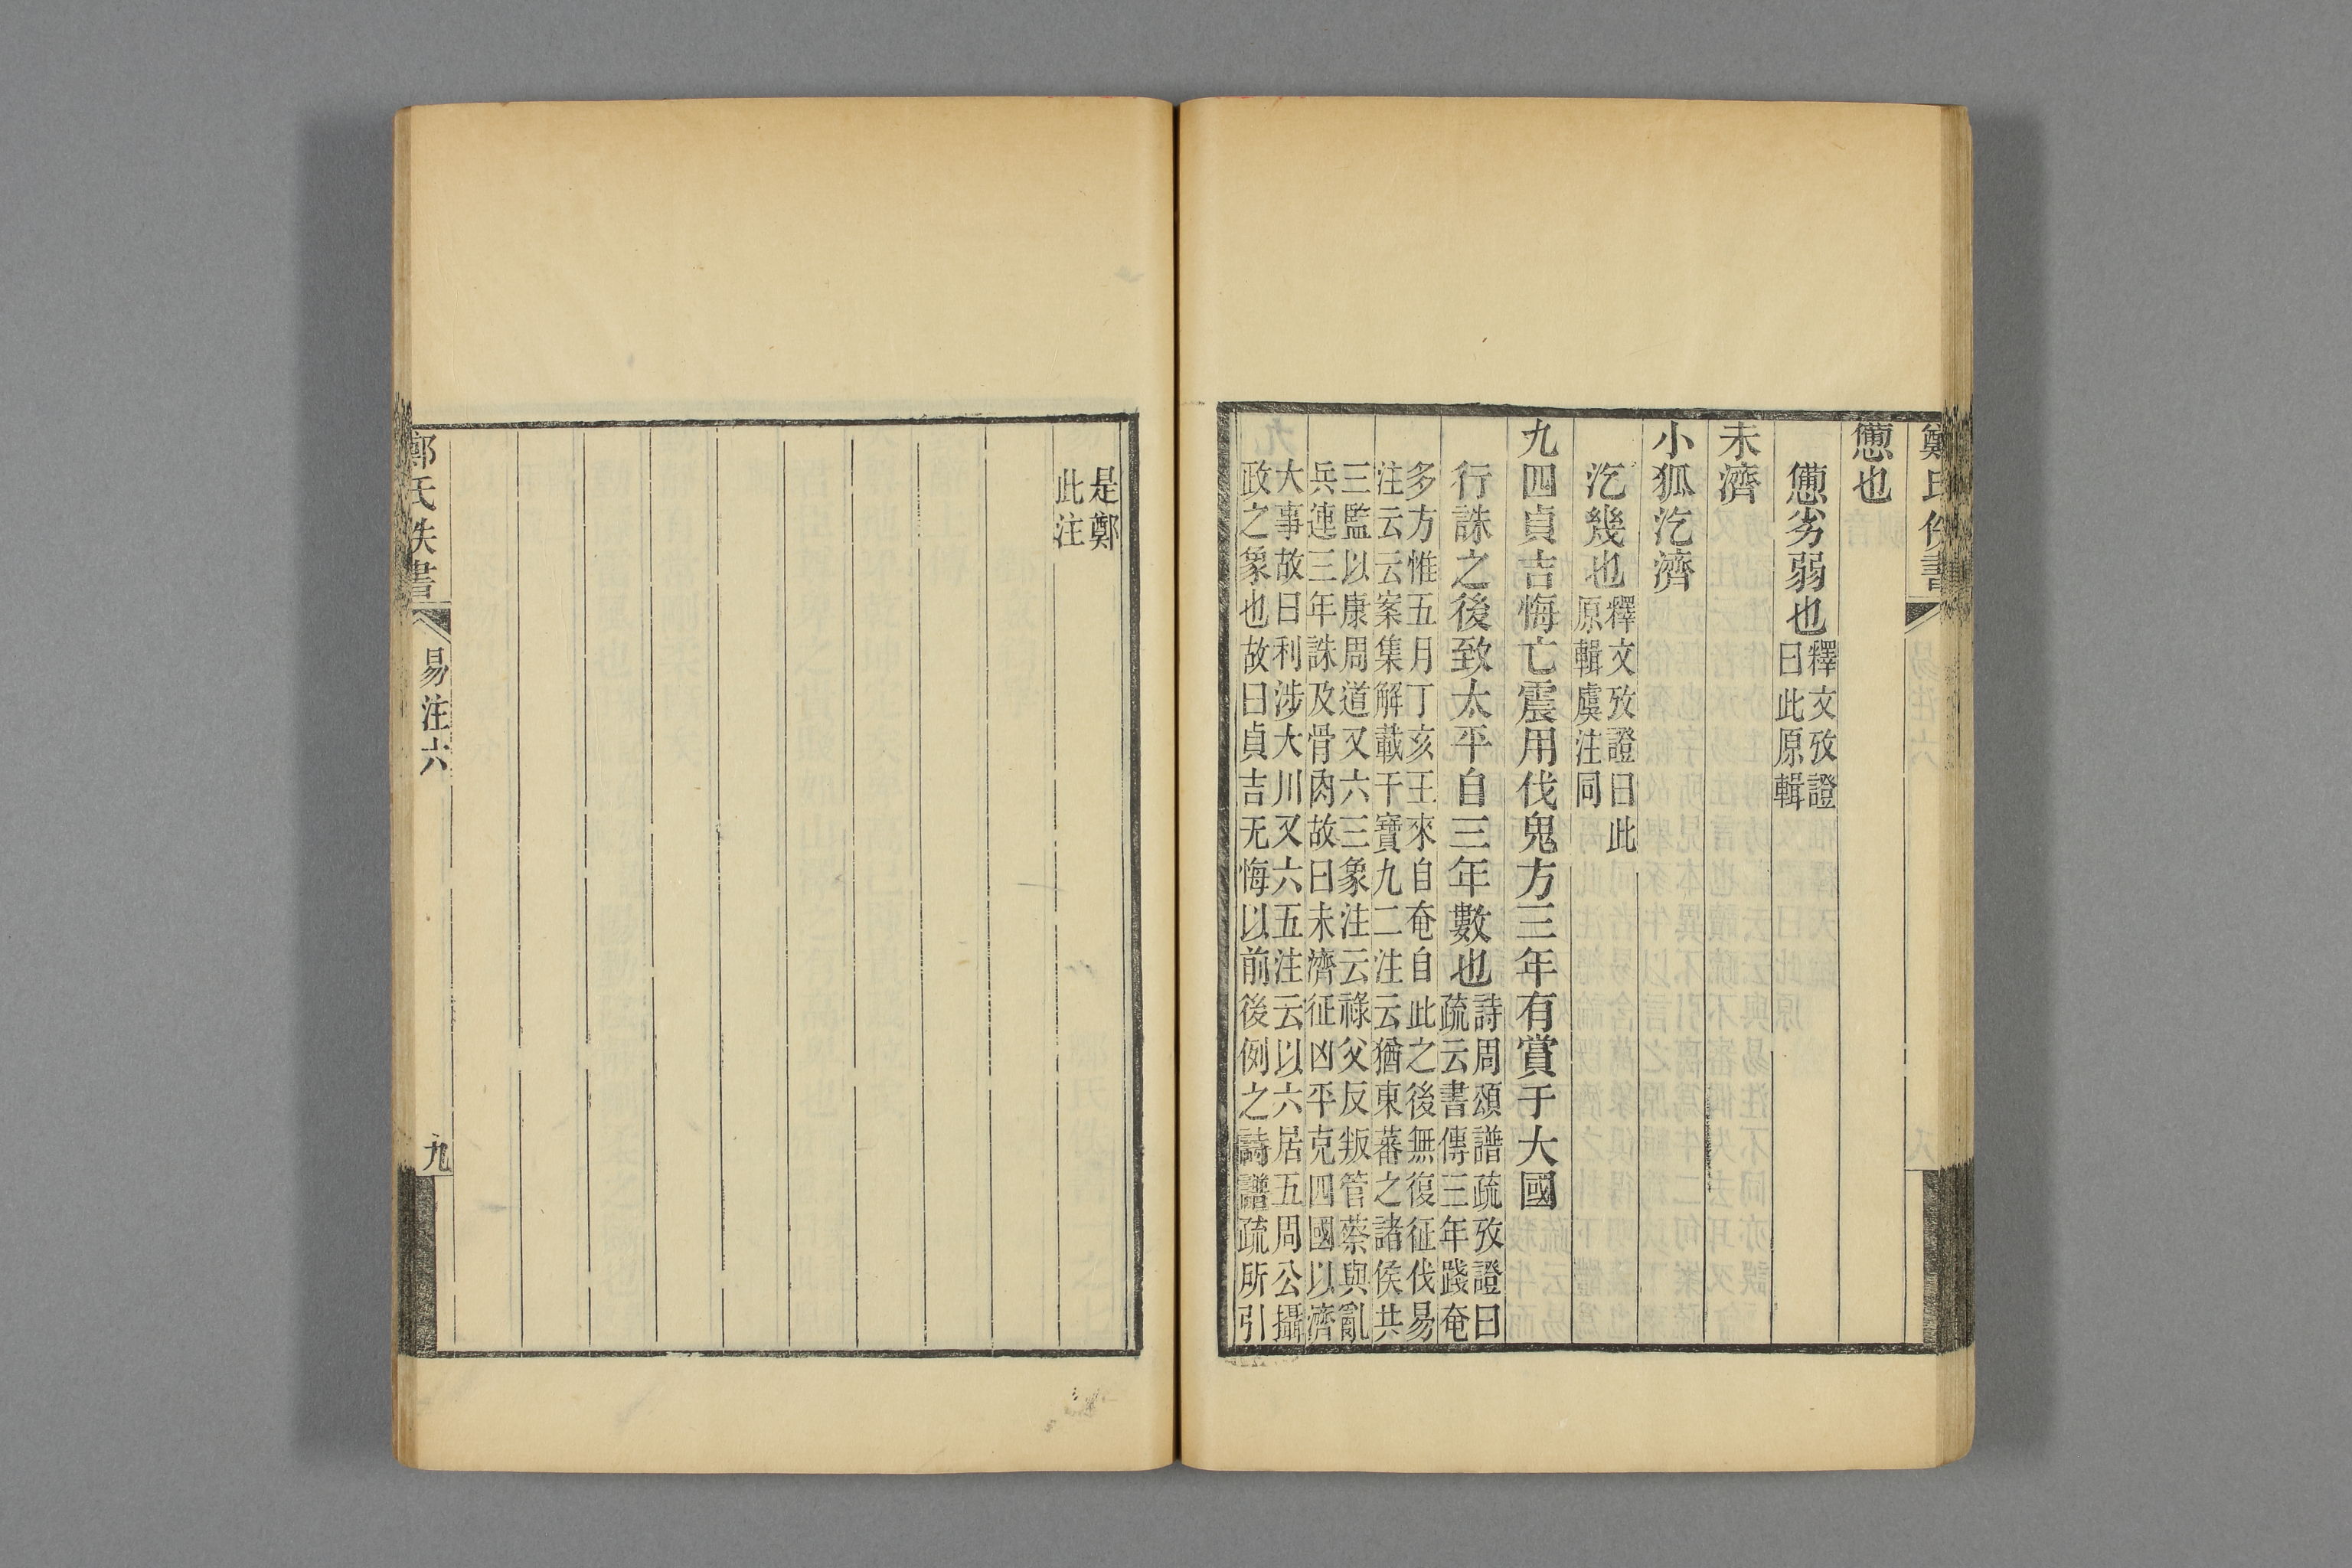 鄭氏佚書
憊也
憊劣弱也釋文攷證
曰此原輯
未濟
小狐汔濟
汔幾也釋文攷證曰此
原輯虞注同
九四貞吉悔亡震用伐鬼方三年有賞于大國
行誅之後致太平自三年數也詩周頌譜疏攷證曰
疏云書傳三年踐奄
多方惟五月丁亥王來自奄自此之後無復征伐易
注云云案集解載干寶九二注云猶東蕃之諸侯共
三監以康周道又六三象注云祿父反叛管蔡與亂
兵連三年誅及骨肉故曰未濟征凶平克四國以濟
大事故曰利涉大川又六五注云以六居五周公攝
政之象也故曰貞吉无悔以前後例之詩譜疏所引
是鄭
此注
鄭氏佚書
易注六
九